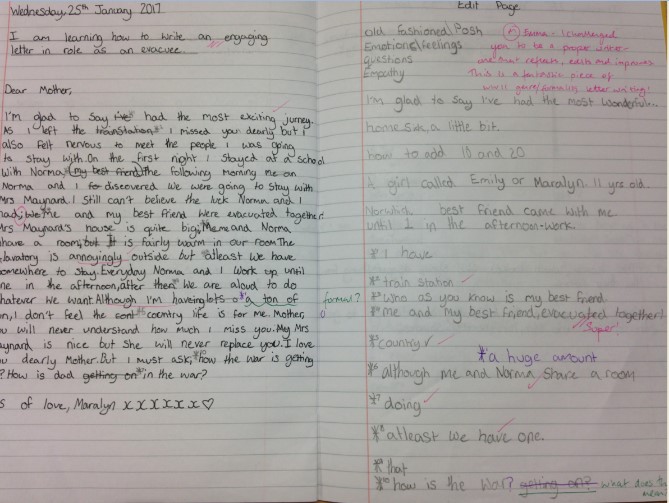 Wednesday, 25th January 2017
I am learning how to write an engaging
letter in role as an evacuee.
Dear Mother,
I'm glad to say I've had the most exciting jurney.
As I left the trainstation, I missed you dearly but I
also felt nervous to meet the people I was going
to stay with. On the first night I stayed at a school
With Norma (my best friend) the following morning me an
Norma and I discovered we were going to stay with
Mrs Maynard. I Still can't believe the luck Norma and I
had; Me and my best friend were evacuated together!
Mrs Maynard's house is quite big; Me and Norma
have a room, but It is fairly warm in our room The
lavatory is annoyingly outside but atleast we have
omewhere to stay. Everyday Norma and I work up until
ne in the afternoon, after then We are aloud to do
hatever We want. Although I'm having lots o a ton of
n, I don't feel the country life is for me. Mother,
u will never understand how much I miss you. My Mrs
ynard is nice but She will never replace you. I love
u dearly Mother. But I must ask; how the war is getting
? How is dad getting on in the war?
s of love, Maralyn x x x x x x
formal?
Edit Page
Old Fashioned/Posh
Emotions/feelings
questions
Empathy
I challenged
you to be a proper
This is a fantastic piece of
letter writing!
I'm glad to say I've had the most wonderful...
home sick, a little bit.
how to add 10 and 20
A girl called Emily or Maralyn. 11 yrs old.
Norwhich best friend came with me
until 1 in the afternoon-work.
* I have
* train station
* Who as you know is my best friend
* me and my best friend, evacuated together!
Super!
* country
* a huge amount
*6 although me and Norma share a room
*7 doing
*8 atleast we have one.
*9 that
*10 how is the war? getting on? what does